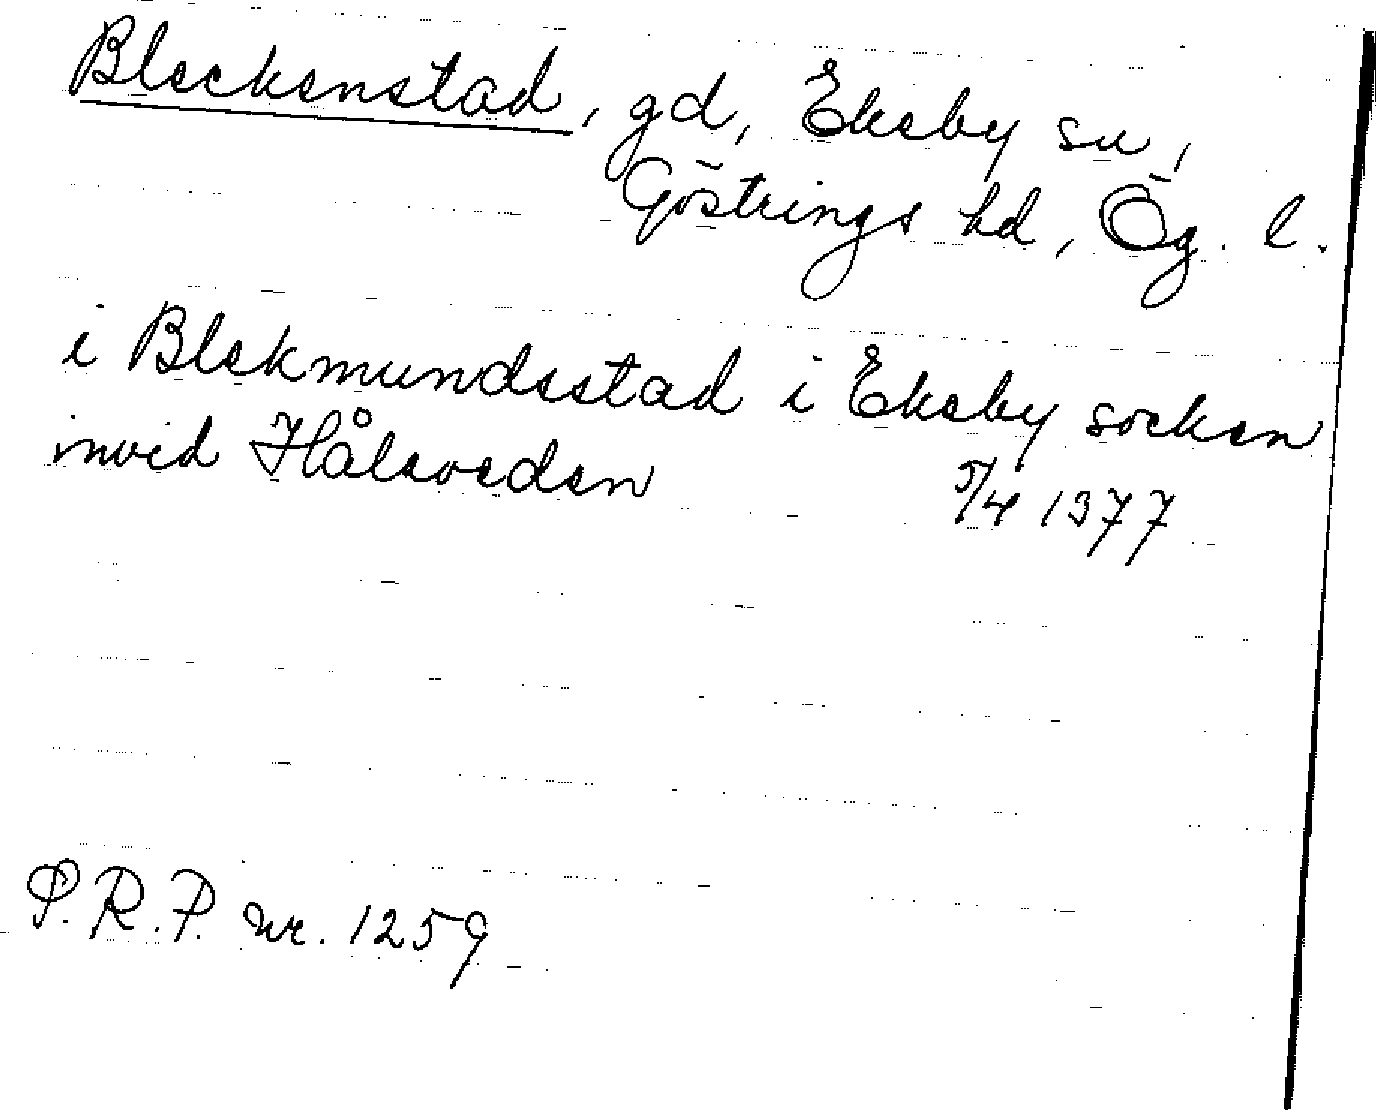 Bleckenstad, gd, Ekeby sn,
Göstrings hd, Ög. l.
i Blekmundsstad i Ekeby socken
invid Hålaveden 5/4 1377
S.R.P. nr. 1259